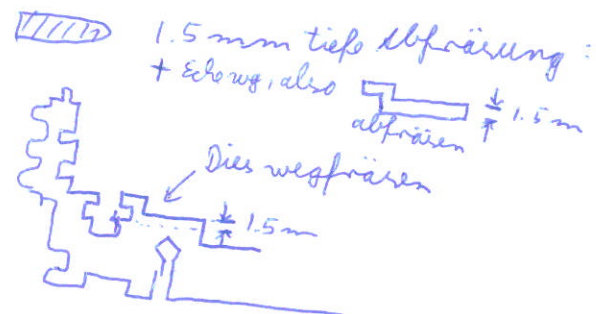 1.5 mm tiefe Abfräsung:
+ Ecke wg, also
1.5 m
abfräsen
Dies wegfräsen
1.5 m